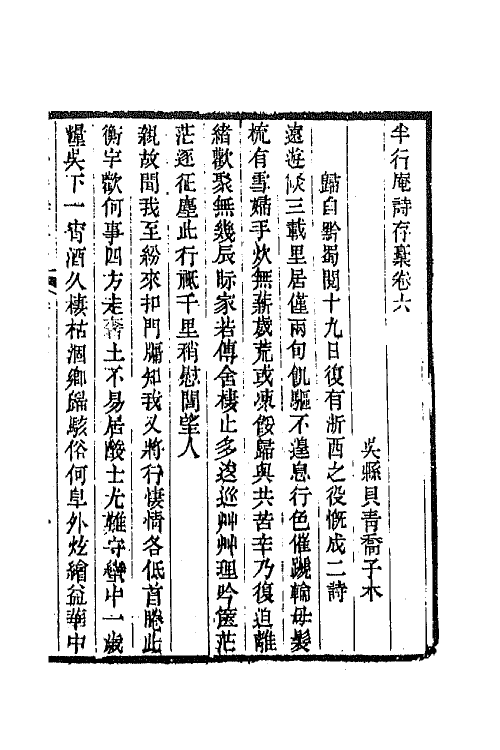 半行庵詩存稾卷六
吳縣貝青喬子木
歸自黔蜀閱十九日復有浙西之役慨成二詩
遠遊倐三載里居僅兩旬飢驅不遑息行色催蹴輪母髮
梳有雪婦手炊無薪歲荒或凍餒歸與共苦辛乃復迫離
緒歡聚無幾辰眎家若傳舍棲止多逡巡艸艸理吟篋茫
茫逐征塵此行祗千里稍慰閭望人
親故聞我至紛來扣門牖知我又將行悽情各低首睠此
衡宇歡何事四方走瘠土不易居酸士尤難守蠻中一歲
糧吳下一宵酒久棲枯涸鄉歸駭俗何阜外炫繪益華中